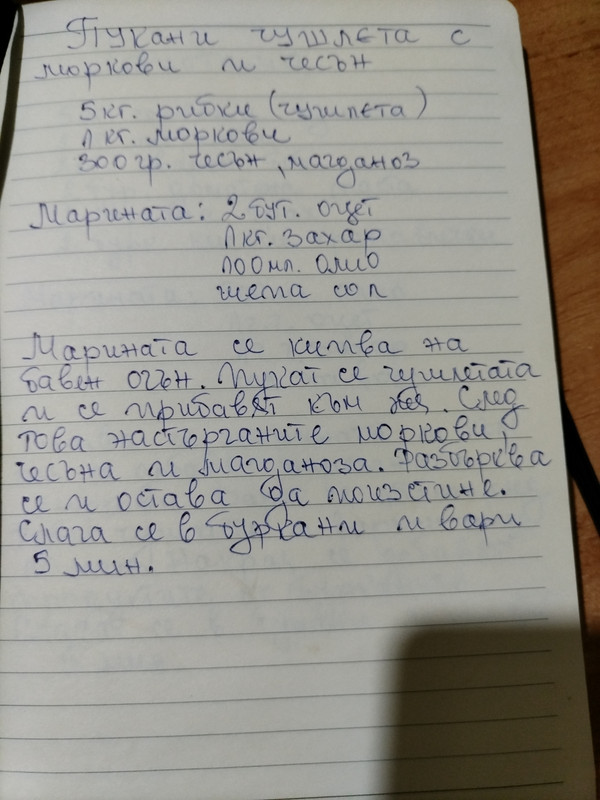 Пукани чушлета с
моркови и чесън
5 кг. рибки (чушлета)
1 кг. моркови
300 гр. чесън, магданоз
Марината: 2 бут. оцет
1 кг. захар
100 мл. олио
шепа сол
Марината се кипва на
бавен огън. Пукат се чушлетата
и се прибавят към нея. След
това настърганите моркови,
чесъна и магданоза. Разбърква
се и остава да поизстине.
Слага се в буркани и вари
5 мин.